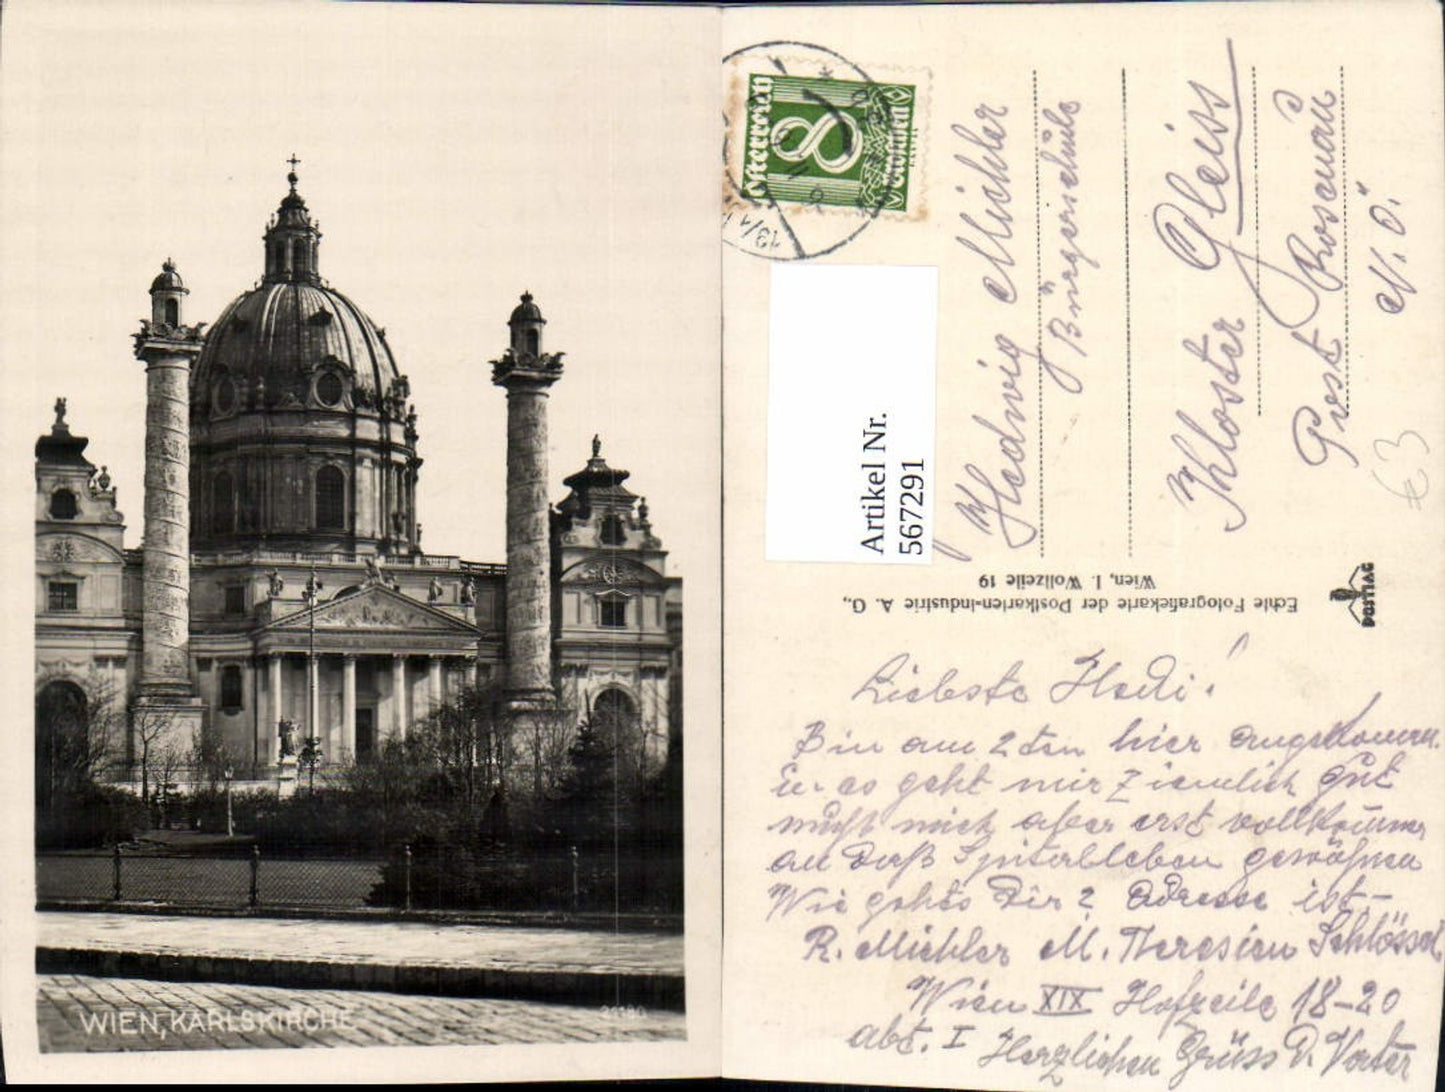 WIEN, KARLSKIRCHE
21180
Österreich
8
Groschen
Artikel Nr.
567291
Hedwig Michler
Bürgerschule
Kloster Gleiss
Post Rosenau
N.Ö.
€3
Echte Fotografiekarte der Postkarten-Industrie A. G.,
Wien, I. Wollzeile 19
POSTIAG
Liebste Hedi!
Bin am 2ten hier angekommen.
es geht mir ziemlich gut
muß mich aber erst vollkommen
an daß Spitalleben gewöhnen
Wie gehts Dir? Adresse ist-
R. Michler M. Theresien Schlössel
Wien XIX Hofzeile 18-20
abt. I Herzlichen Grüss D. Vater